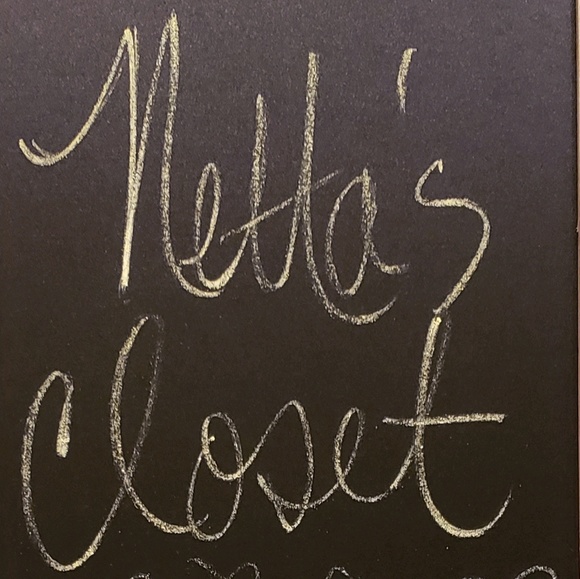 Netta's
Closet